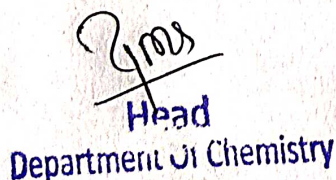 Head
Department Of Chemistry